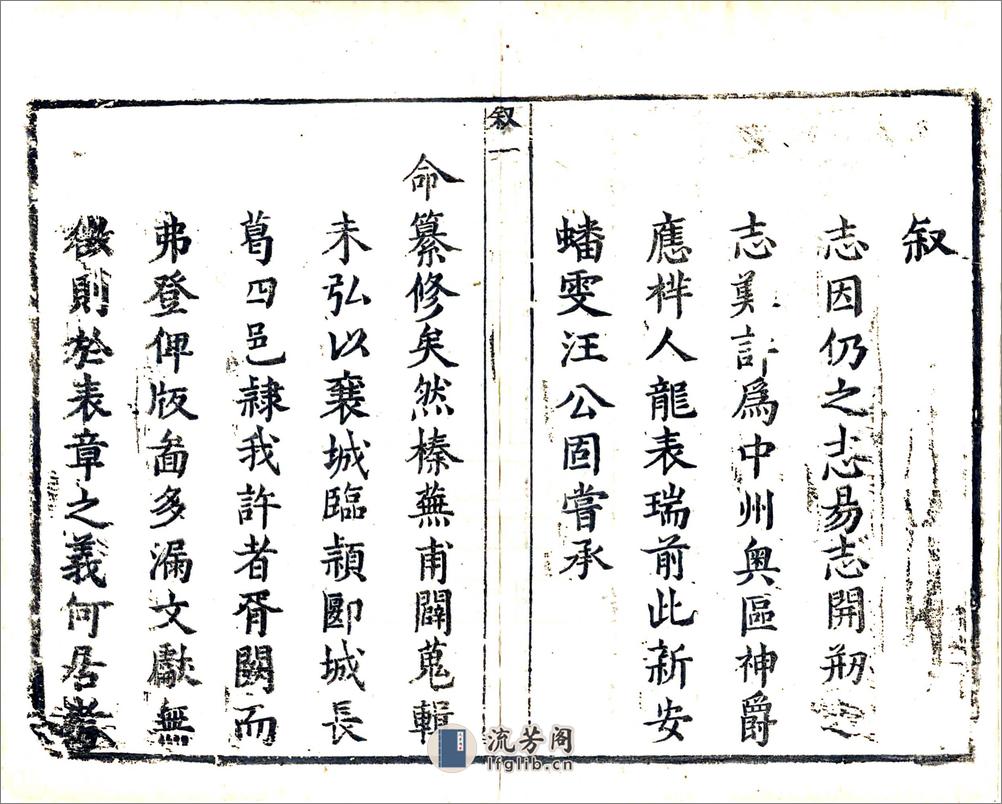 叙
志因仍之志易志開刱之
志難許爲中州奥區神爵
應樣人龍表瑞前此新安
蟠雯汪公固嘗承
叙一
命纂修矣然榛蕪甫闢蒐輯
未弘以襄城臨潁郾城長
葛四邑隷我許者胥闕而
弗登俾版啚多漏文獻無
徴則於表章之義何居
流芳阁
lfglib.cn